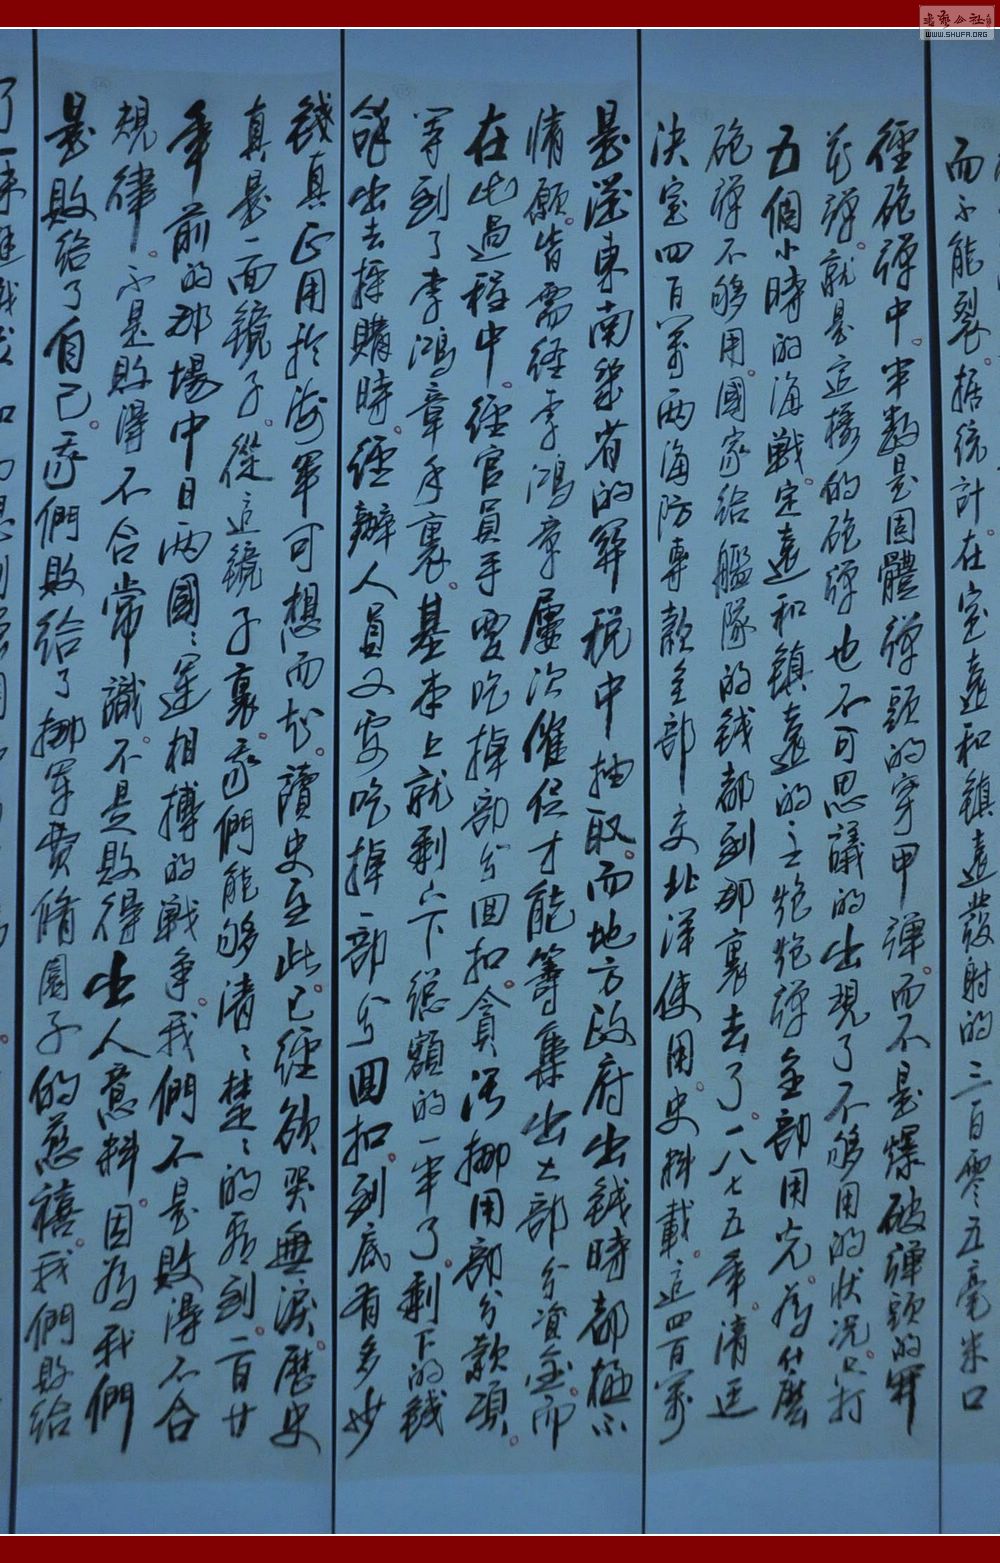 而不能裂据统計在定遠和鎮遠發射的三百零五毫米口
徑砲彈中半數是固體彈頭的穿甲彈而不是爆破彈頭的開
花彈就是這樣的砲彈也不可思議的出現了不够用的状况只打
五個小時的海戰定遠和鎮遠的主炮炮彈全部用光為什麼
砲彈不够用國家給艦隊的錢都到那裏去了一八七五年清廷
決定四百萬两海防專款全部交北洋使用史料載這四百萬
是從東南幾省的關税中抽取而地方政府出錢時都極不
情願皆需经李鴻章屢次催促才能籌集出大部分資金而
在此過程中经官員手要吃掉部分回扣貪污挪用部分款項
等到了李鴻章手裏基本上就剩下總額的一半了剩下的錢
拿出去採購時經辦人員又要吃掉一部分回扣到底有多少
錢真正用於海軍可想而知讀史至此已經欲哭無淚歷史
真是一面鏡子從這鏡子裏我們能够清清楚楚的看到一百廿
年前的那場中日两國國運相搏的戰争我們不是敗得不合
規律不是敗得不合常識不是敗得出人意料因為我們
是敗给了自己我們敗给了挪軍費脩園子的慈禧我們敗给
书艺公社
WWW.SHUFA.ORG